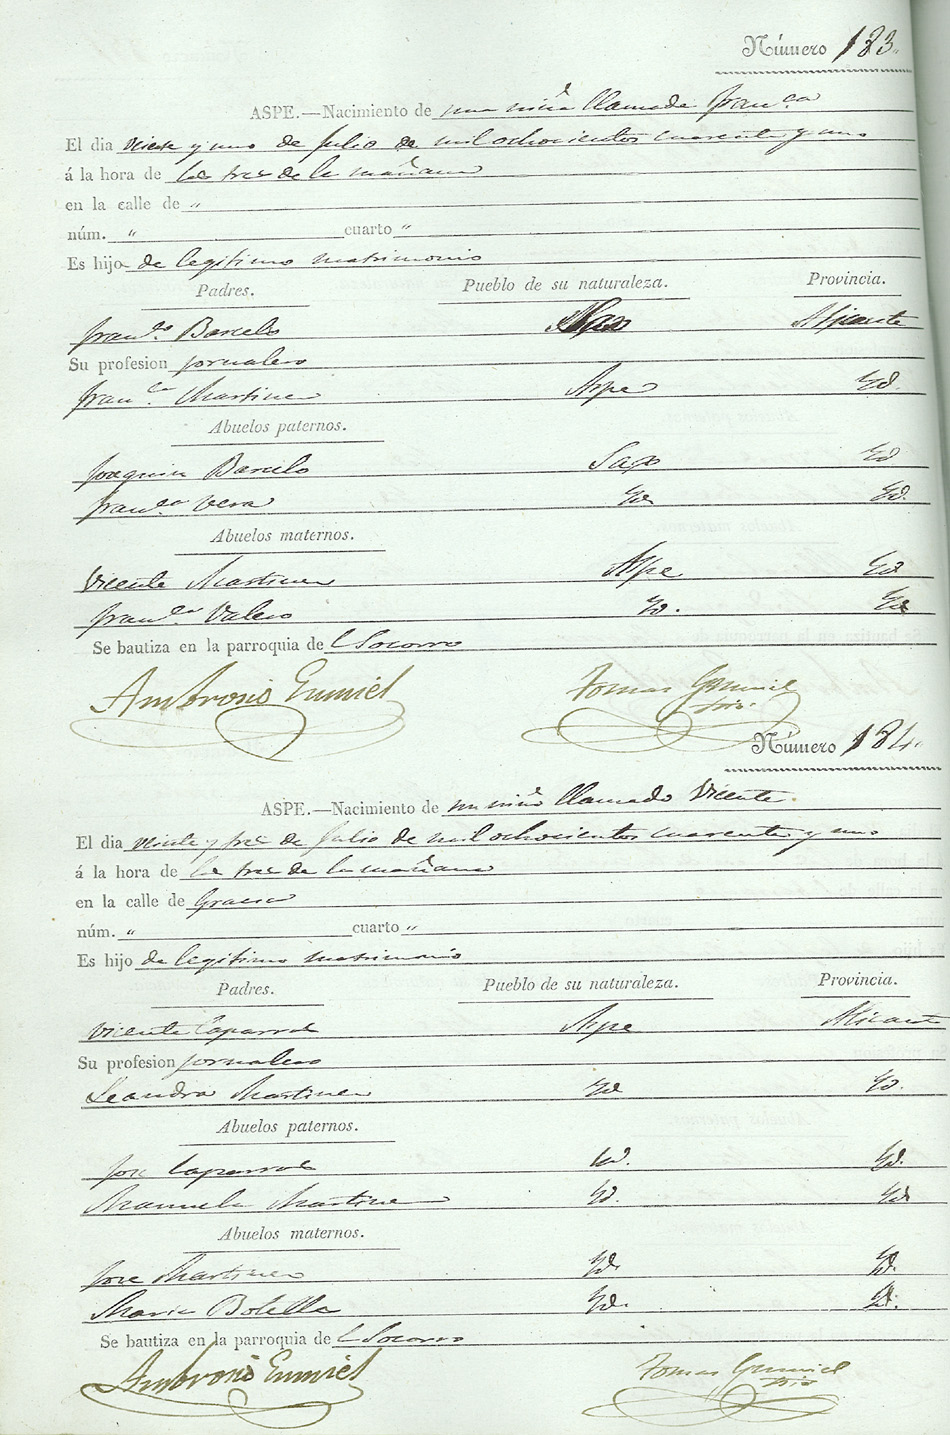 Número 183.
ASPE.—Nacimiento de una niña llamada Fran.ca
El dia veinte y uno de Julio de mil ochocientos cuarenta y uno
á la hora de las tres de la mañana
en la calle de "
núm. " cuarto "
Es hijo de legitimo matrimonio
Padres. Pueblo de su naturaleza. Provincia.
Fran.co Barcelo Alicante
Su profesion jornalero
Fran.ca Martinez Aspe Yd.
Abuelos paternos.
Joaquin Barcelo Sax Yd
Fran.ca Vera Yd. Yd.
Abuelos maternos.
Vicente Martinez Aspe Yd
Fran.ca Valero Yd. Yd
Se bautiza en la parroquia del Socorro
Ambrosio Tomas
Srio.
Número 184.
ASPE.—Nacimiento de un niño llamado Vicente.
El dia veinte y tres de Julio de mil ochocientos cuarenta y uno
á la hora de las tres de la mañana
en la calle de
núm. " cuarto "
Es hijo de legitimo matrimonio
Padres. Pueblo de su naturaleza. Provincia.
Vicente Caparros Aspe Alicante
Su profesion jornalero
Leandra Martinez Yd Yd.
Abuelos paternos.
Jose Caparros Yd. Yd.
Manuela Martinez Yd. Yd
Abuelos maternos.
Jose Martinez Yd. Yd.
Maria Botella Yd. Yd.
Se bautiza en la parroquia del Socorro
Ambrosio Tomas
Srio